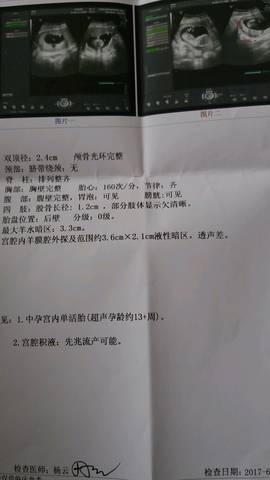 图片一 图片二
双顶径：2.4cm 颅骨光环完整
颈部：脐带绕颈：无
脊 柱：排列整齐
胸部：胸壁完整 胎心：160次/分，节律：齐
腹 部：腹壁完整，胃泡：可见 膀胱：可见
四 肢：股骨长径：1.2cm ，部分肢体显示欠清晰。
胎盘位置：后壁 分级：0级。
最大羊水暗区：3.3cm。
宫腔内羊膜腔外探及范围约3.6cm×2.1cm液性暗区，透声差。
见：1.中孕宫内单活胎（超声孕龄约13+周）。
2.宫腔积液：先兆流产可能。
检查医师：杨云 检查日期：2017-6